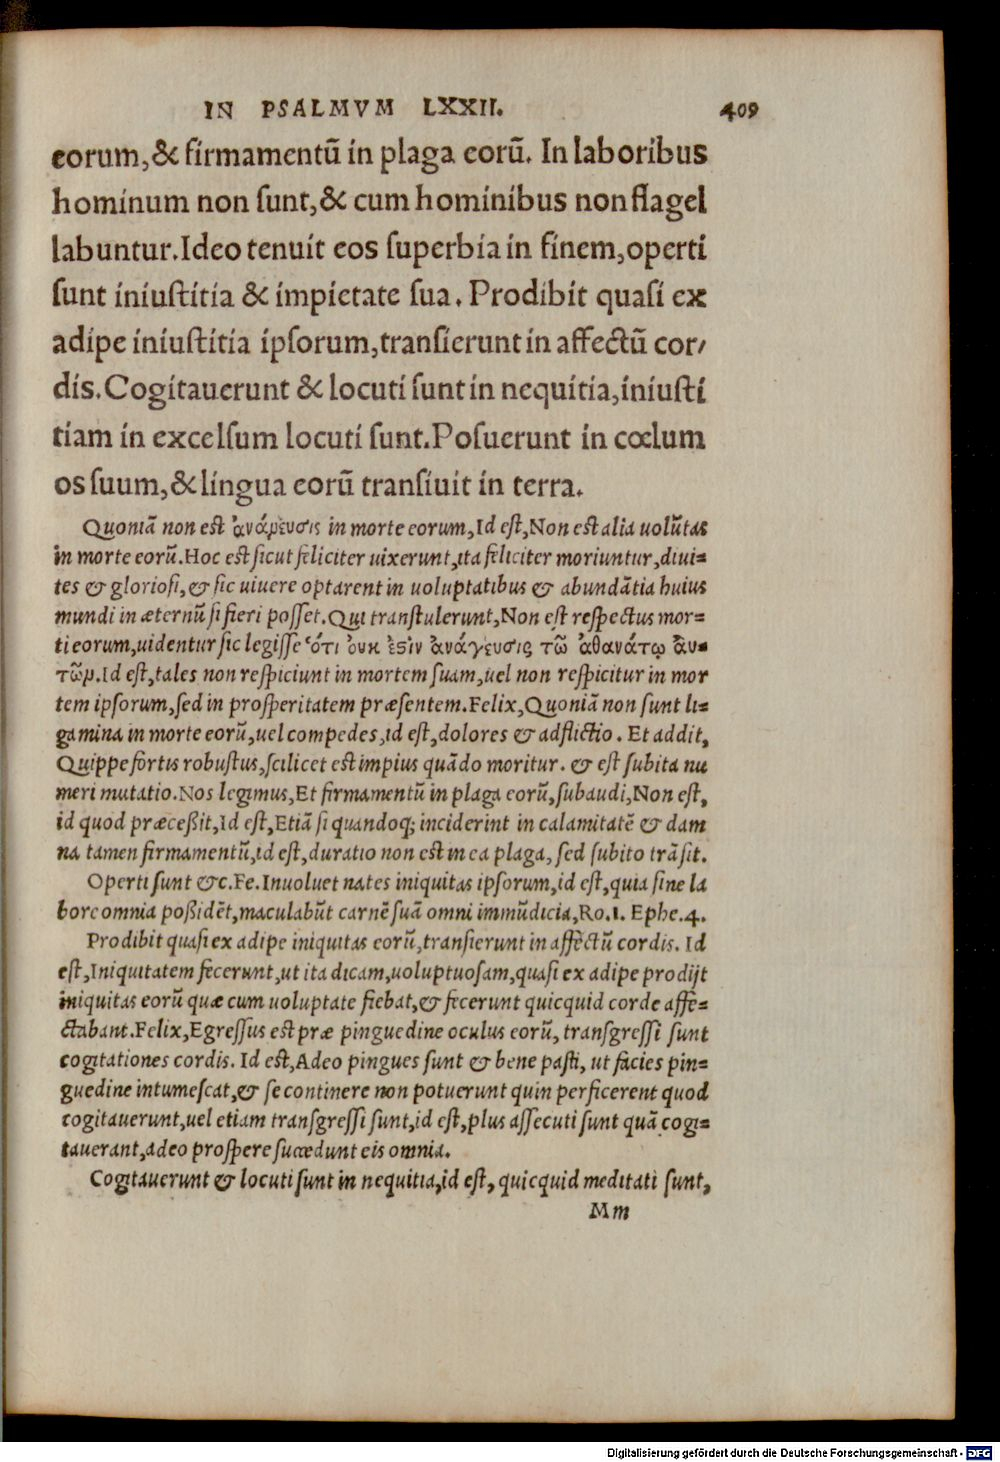 IN PSALMVM LXXII. 409
eorum,& firmamentũ in plaga eorũ. In laboribus
hominum non ſunt,& cum hominibus non flagel
labuntur.Ideo tenuit eos ſuperbia in finem,operti
ſunt iniuſtitia & impietate ſua. Prodibit quaſi ex
adipe iniuſtitia ipſorum,tranſierunt in affectũ cor/
dis.Cogitauerunt & locuti ſunt in nequitia,iniuſti
tiam in excelſum locuti ſunt.Poſuerunt in cœlum
os ſuum,& lingua eorũ tranſiuit in terra.
Quoniã non eſt in morte eorum,Id eſt,Non eſt alia uolũtas
in morte eorũ.Hoc eſt ſicut feliciter uixerunt,ita feliciter moriuntur,diui=
tes & glorioſi,& ſic uiuere optarent in uoluptatibus & abundãtia huius
mundi in æternũ ſi fieri poſſet.Qui tranſtulerunt,Non eſt reſpectus mor=
ti eorum,uidentur ſic legiſſe ὁτι ὀυκ ἐςὶν ἀνάγευσις τῶ ἀθανάτῳ ἀυ=
τῶν.Id eſt,tales non reſpiciunt in mortem ſuam,uel non reſpicitur in mor
tem ipſorum,ſed in proſperitatem præſentem.Felix,Quoniã non ſunt li=
gamina in morte eorũ,uel compedes,id eſt,dolores & adflictio. Et addit,
Quippe fortis robuſtus,ſcilicet eſt impius quãdo moritur. & eſt ſubita nu
meri mutatio.Nos legimus,Et firmamentũ in plaga eorũ,ſubaudi,Non eſt,
id quod præceßit,Id eſt,Etiã ſi quandoq; inciderint in calamitatẽ & dam
na tamen firmamentũ,id eſt,duratio non eſt in ea plaga, ſed ſubito trãſit.
Operti ſunt &c.Fe.Inuoluet nates iniquitas ipſorum,id eſt,quia ſine la
bore omnia poßidẽt,maculabũt carnẽ ſuã omni immũdicia,Ro.1. Ephe.4.
Prodibit quaſi ex adipe iniquitas eorũ,tranſierunt in affectũ cordis. Id
eſt,Iniquitatem fecerunt,ut ita dicam,uoluptuoſam,quaſi ex adipe prodijt
iniquitas eorũ quæ cum uoluptate fiebat,& fecerunt quicquid corde affe=
ctabant.Felix,Egreſſus eſt præ pinguedine oculus eorũ, tranſgreſſi ſunt
cogitationes cordis. Id eſt,Adeo pingues ſunt & bene paſti, ut facies pin=
guedine intumeſcat,& ſe continere non potuerunt quin perficerent quod
cogitauerunt,uel etiam tranſgreſſi ſunt,id eſt,plus aſſecuti ſunt quã cogi=
tauerant,adeo proſpere ſuccedunt eis omnia.
Cogitauerunt & locuti ſunt in nequitia,id eſt, quicquid meditati ſunt,
Mm
Digitalisierung gefördert durch die Deutsche Forschungsgemeinschaft - DFG